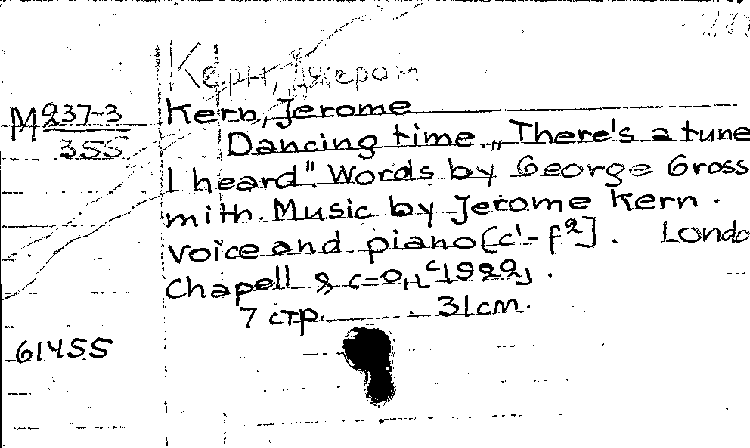 Керн, Джером
M 237-3
355
Kern, Jerome
Dancing time. „There's a tune
I heard". Words by George Gross
mith. Music by Jerome Kern.
Voice and piano [c¹-f²]. Londo
Chapell & C-o,
7 стр. 31cm.
61455